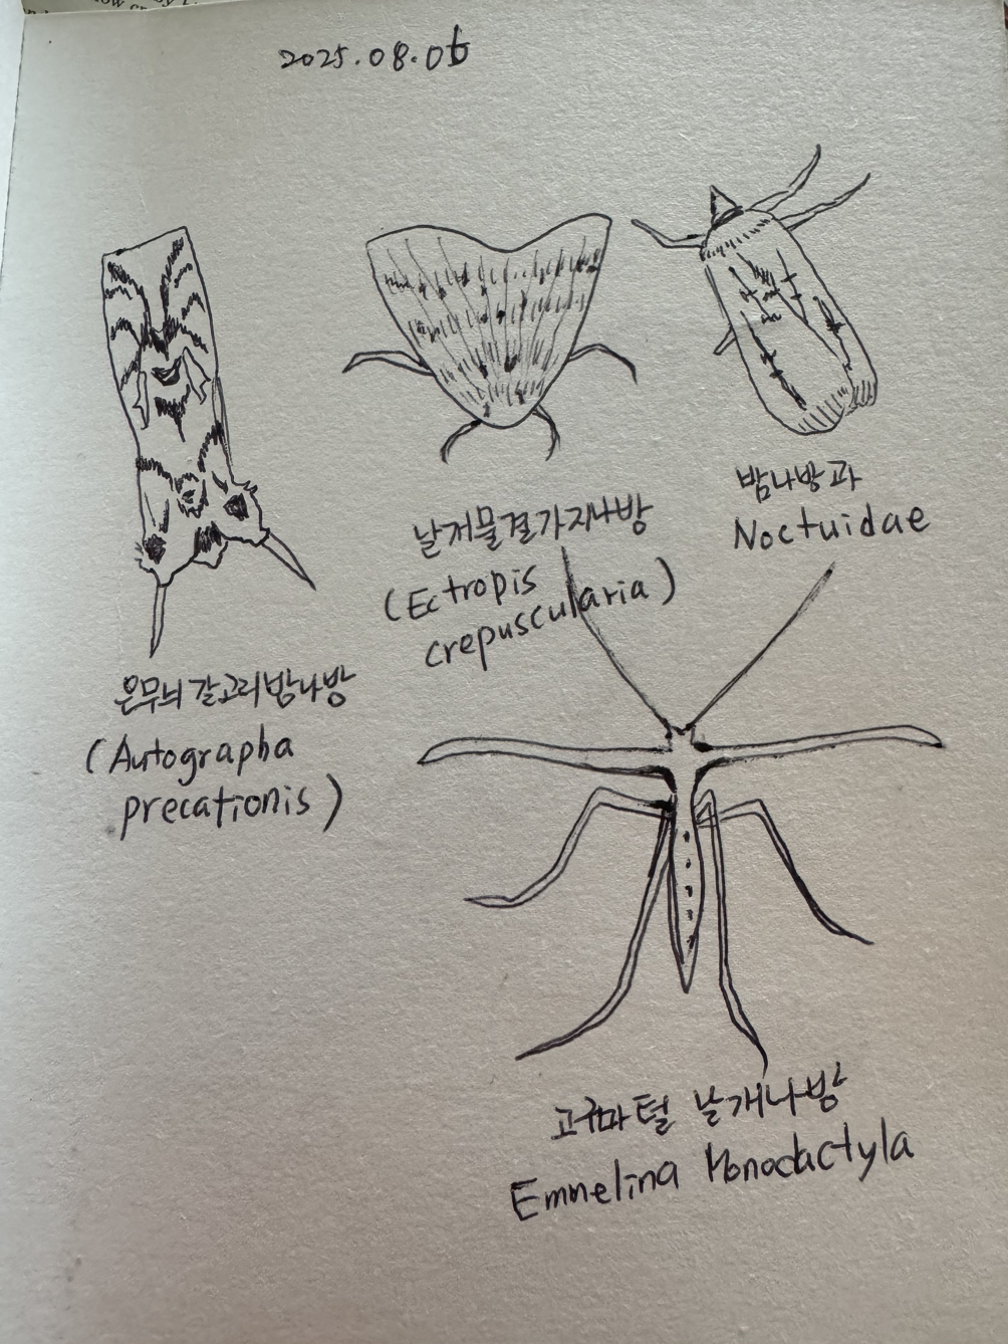 2025.08.06
은무늬갈고리밤나방
(Autographa
precationis)
날개물결가지나방
(Ectropis
crepuscularia)
밤나방과
Noctuidae
고구마털 날개나방
Emmelina Monodactyla